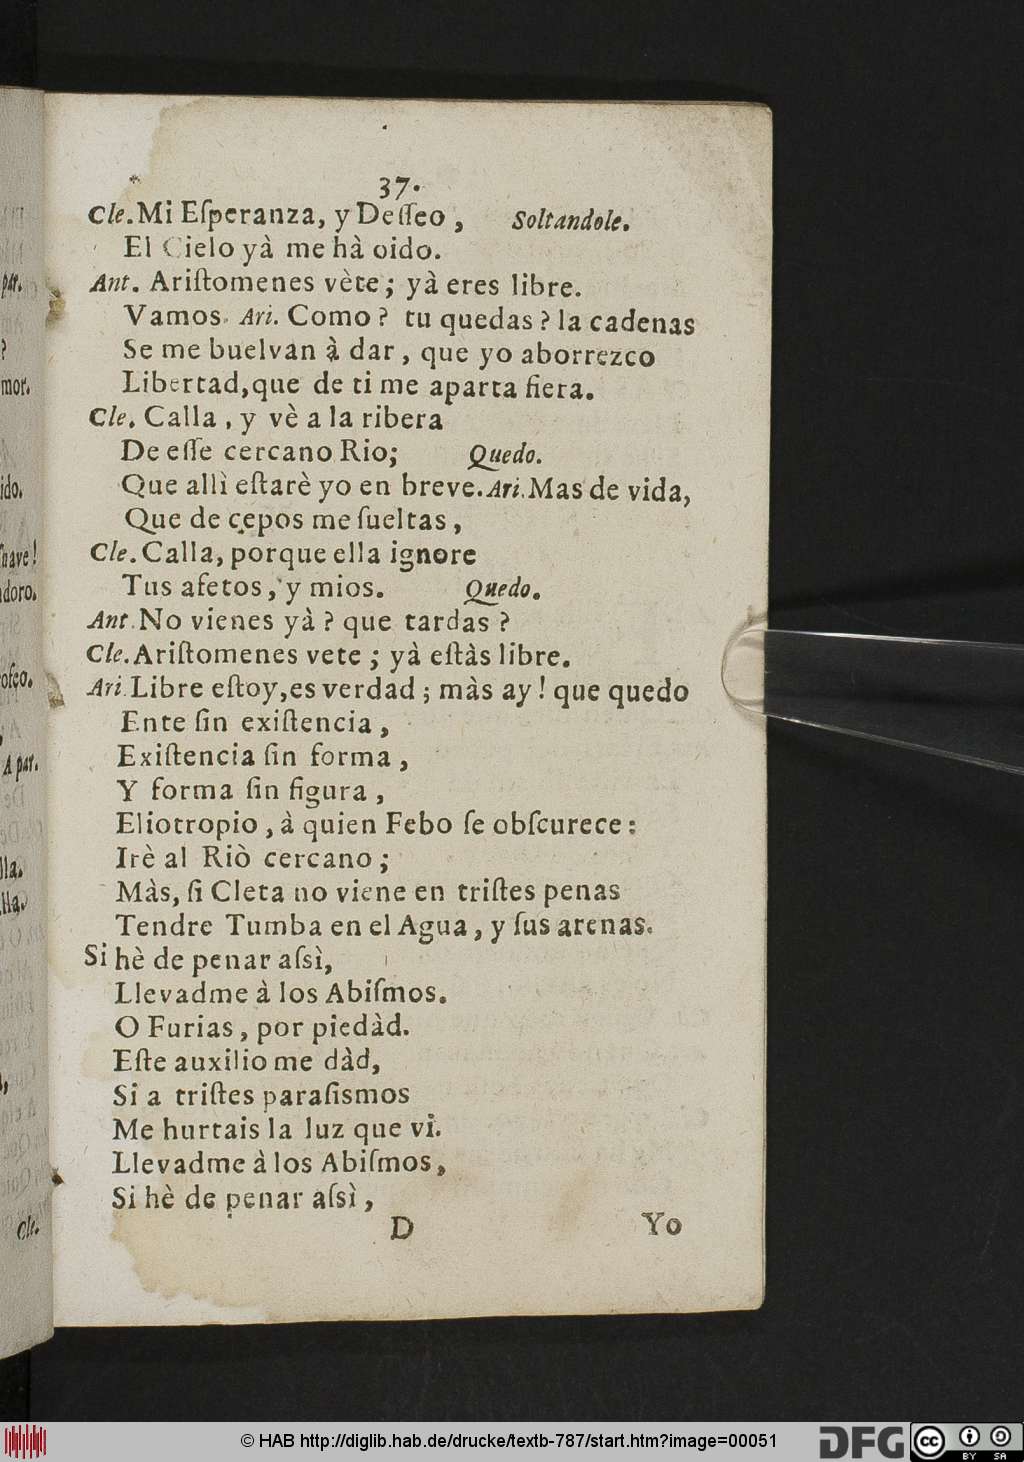 37.
Cle. Mi Eſperanza, y Deſſeo, Soltandole.
El Cielo yà me hà oido.
Ant. Ariſtomenes vète; yà eres libre.
Vamos. Ari. Como? tu quedas? la cadenas
Se me buelvan à dar, que yo aborrezco
Libertad, que de ti me aparta fiera.
Cle. Calla, y vè a la ribera
De eſſe cercano Rio; Quedo.
Que allì eſtarè yo en breve. Ari. Mas de vida,
Que de cepos me ſueltas,
Cle. Calla, porque ella ignore
Tus afetos, y mios. Quedo.
Ant. No vienes yà? que tardas?
Cle. Ariſtomenes vete; yà eſtàs libre.
Ari. Libre eſtoy, es verdad; màs ay! que quedo
Ente ſin exiſtencia,
Exiſtencia ſin forma,
Y forma ſin figura,
Eliotropio, à quien Febo ſe obſcurece:
Irè al Riò cercano;
Màs, ſi Cleta no viene en triſtes penas
Tendre Tumba en el Agua, y ſus arenas.
Si hè de penar aſsì,
Llevadme à los Abiſmos.
O Furias, por piedàd.
Eſte auxilio me dàd,
Si a triſtes paraſismos
Me hurtais la luz que vi.
Llevadme à los Abiſmos,
Si hè de penar aſsì,
D Yo
par.
?
mor.
ido.
ſuave!
adoro.
A par.
lla.
Cle.
© HAB http://diglib.hab.de/drucke/textb-787/start.htm?image=00051
DFG
cc
BY SA